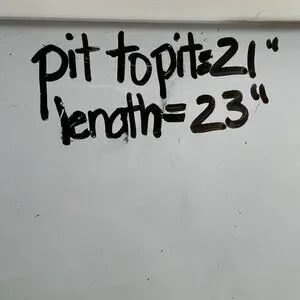 pit to pit=21"
length=23"